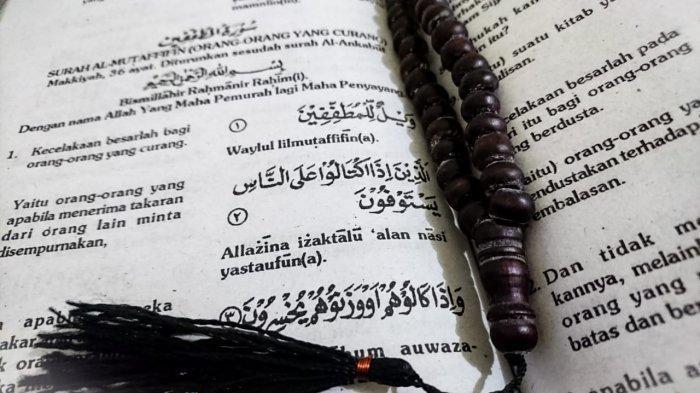 mannun(i).
سُورَةُ الْمُطَفِّفِيْنَ
SURAH AL-MUTAFFIFIN (ORANG-ORANG YANG CURANG)
Makkiyah, 36 ayat. Diturunkan sesudah surah Al-Ankabut
بِسْمِ اللهِ الرَّحْمٰنِ الرَّحِيْمِ
Bismillāhir Raḥmānir Raḥīm(i).
Dengan nama Allah Yang Maha Pemurah lagi Maha Penyayang
1. Kecelakaan besarlah bagi
orang-orang yang curang.
Yaitu orang-orang yang
apabila menerima takaran
dari orang lain minta
disempurnakan,
apab
orang
وَيْلٌ لِّلْمُطَفِّفِيْنَ
١
Waylul lilmuṭaffifīn(a).
الَّذِيْنَ اِذَا كْتَالُوْا عَلَى النَّاسِ
يَسْتَوْفُوْنَ
٢
Allażīna iżaktālū ‘alan nāsi
yastaufūn(a).
وَاِذَا كَالُوْهُمْ اَوْ وَّزَنُوْهُمْ يُخْسِرُوْنَ ٣
auwaza-
suatu kitab
kecelakaan besarlah pada
itu bagi orang-orang
berdusta.
orang-orang
mendustakan terhadap
pembalasan.
Dan tidak
kannya, melain
orang yang
batas dan ber
apabila